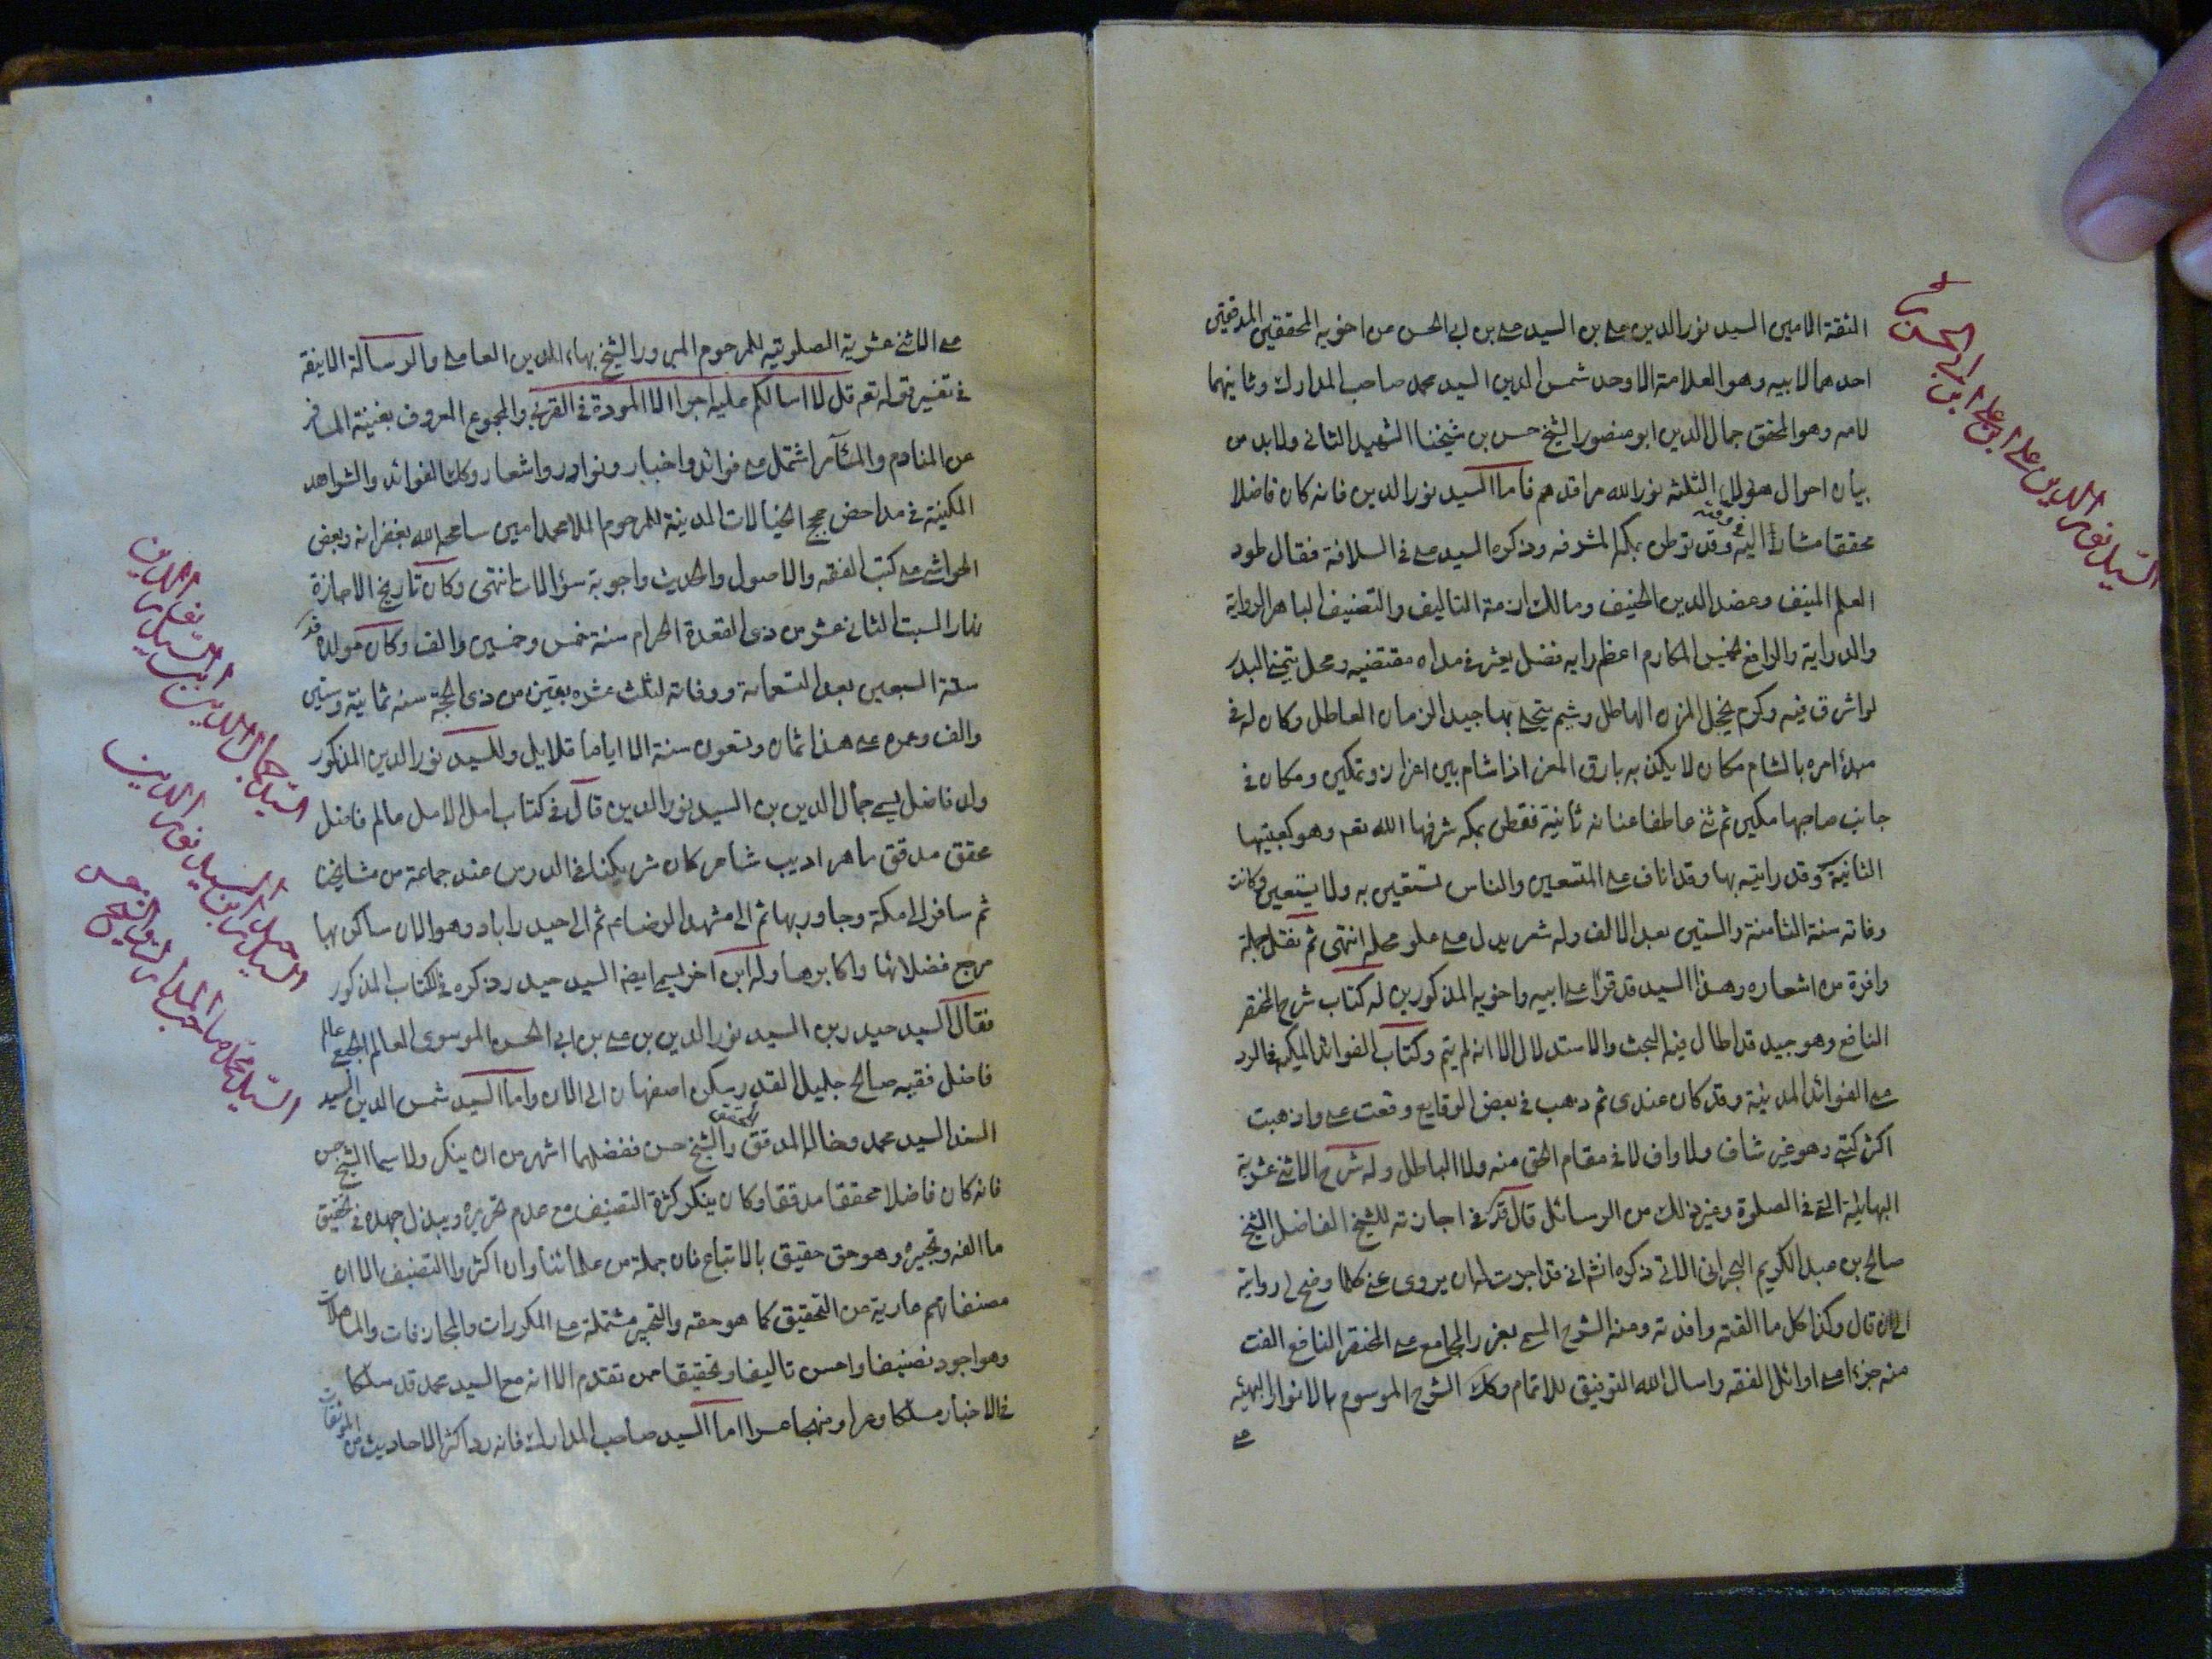 السيد نور الدين علي ابن علي ابن ابي الحسن
الثقة الامين السيد نور الدين علي بن السيد علي بن ابي الحسن عن اخويه المحققين المدققين
احدهما لابيه وهو العلامة الاوحد شمس الدين السيد محمد صاحب المدارك وثانيهما
لامه وهو المحقق جمال الدين ابو منصور الشيخ حسن بن شيخنا الشهيد الثاني ولابد من
بيان احوال هؤلاء الثلثه نور الله مراقدهم فاما السيد نور الدين فانه كان فاضلا
محققا مشارا اليه في وقته وقد توطن بمكه المشرفه وذكره السيد علي في السلافة فقال طود
العلم المنيف وعضد الدين الحنيف ومالك ازمة التاليف والتصنيف الباهر الرواية
والدراية والرافع لخميس المكارم اعظم رايه فضل يعثر في مداه مقتفيه ومحل يتمنى البدر
لو اشرق فيه وكرم يخجل المزن الهاطل وشيم يتحلى بها جيد الزمان العاطل وكان له في
مبدء امره بالشام مكان لا يكذبه بارق العز اذا شام بين اعزاز وتمكين ومكان في
جانب صاحبها مكين ثم ثنى عاطفا عنانه ثانية فقطن بمكه شرفها الله تعه وهو كعبتها
الثانية وقد رايته بها وقد اناف على التسعين والناس تستعين به ولا يستعين وكانت
وفاته سنة الثامنة والستين بعد الالف وله شعر يدل على علو محله انتهى ثم نقل جملة
وافرة من اشعاره وهذا السيد قد قرأ على ابيه واخويه المذكورين له كتاب شرح المختصر
النافع وهو جيد قد اطال فيه البحث والاستدلال الا انه لم يتم وكتاب الفوائد المكيه في الرد
على الفوائد المدنية وقد كان عندي ثم ذهب في بعض الوقايع وقعت علي واذهبت
اكثر كتبي وهو غير شاف ولا واف لا في مقام الحق منه ولا الباطل وله شرح الاثنى عشرية
البهائية التي في الصلوة وغير ذلك من الرسائل قال قده في اجازته للشيخ الفاضل الشيخ
صالح بن عبد الكريم البحراني الاتي ذكره انشم اني قد اجزت له ان يروي عني كلما وضح لي رواية
الى ان قال وكذا كل ما الفته وافدته ومنه الشرح المسمى بغرر الجامع على المختصر النافع الفت
منه جزءا على اوائل الفقه واسال الله التوفيق للاتمام وكك الشرح الموسوم بالانوار البهيه
على
على الاثنى عشرية الصلوتيه للمرحوم المبرور الشيخ بهاء الدين العاملي والرسالة الانيقه
في تفسير قوله تعه قل لا اسالكم عليه اجرا الا المودة في القربى والمجموع المعروف بغنية المسافر
عن المنادم والمسآمر اشتمل على فوائد واخبار ونوادر واشعار وكك الفوائد والشواهد
المكية في مداحض حجج الخيالات المدنية للمرحوم الملا محمد امين سامحه الله بغفرانه وبعض
الحواشي على كتب الفقه والاصول والحديث واجوبة سؤالات انتهى وكان تاريخ الاجازة
نهار السبت الثاني عشر من ذي القعدة الحرام سنة خمس وخمسين والف وكان مولده قده
سنة السبعين بعد التسعمائه ووفاته لثلث عشره بقين من ذي الحجة سنه ثمانية وستين
والف وعمره على هذا ثمان وتسعون سنة الا اياما قلايل وللسيد نور الدين المذكور
ولد فاضل يسمى جمال الدين بن السيد نور الدين قال في كتاب امل الامل عالم فاضل
محقق مدقق ماهر اديب شاعر كان شريكنا في الدرس عند جماعة من مشايخنا
ثم سافر الى مكة وجاور بها ثم الى مشهد الرضا عه ثم الى حيدراباد وهو الان ساكن بها
مرجع فضلائها واكابرها وله ابن اخر يسمى ايضا السيد حيدر ذكره في الكتاب المذكور
فقال السيد حيدر بن السيد نور الدين بن علي بن ابي الحسن الموسوي العاملي الجبعي عالم
فاضل فقيه صالح جليل القدر سكن اصفهان الى الان واما السيد شمس الدين السيد
السند السيد محمد وخاله المدقق المحقق والشيخ حسن ففضلهما اشهر من ان ينكر ولا سيما الشيخ حسن
فانه كان فاضلا محققا مدققا وكان ينكر كثرة التصنيف مع عدم تحريره ويبذل جهده في تحقيق
ما الفه وتحبيره وهو حق حقيق بالاتباع فان جملة من علمائنا وان اكثروا التصنيف الا ان
مصنفاتهم عارية عن التحقيق كما هو حقه والتحبير مشتملة على المكررات والمجازفات والمساهلات
وهو اجود تصنيفا واحسن تاليفا وتحقيقا ممن تقدم الا انه مع السيد محمد قد سلكا
في الاخبار مسلكا وعرا ونهجا منهجا عسرا اما السيد صاحب المدارك فانه رد اكثر الاحاديث من الموثقات
السيد جمال الدين ابن السيد نور الدين
السيد حيدر ابن السيد نور الدين
السيد محمد صاحب المدارك والشيخ حسن